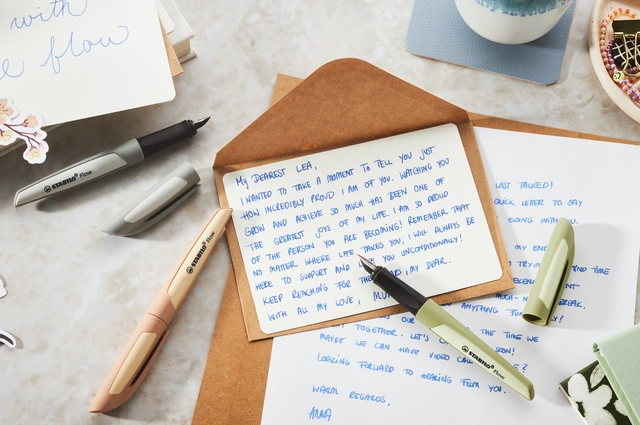 with
flow
STABILO flow
STABILO flow
STABILO flow
My DEAREST LEA,
I WANTED TO TAKE A MOMENT TO TELL YOU JUST
HOW INCREDIBLY PROUD I AM OF YOU. WATCHING YOU
GROW AND ACHIEVE SO MUCH HAS BEEN ONE OF
THE GREATEST JOYS OF MY LIFE. I AM SO PROUD
OF THE PERSON YOU ARE BECOMING! REMEMBER THAT
NO MATTER WHERE LIFE TAKES YOU, I WILL ALWAYS BE
HERE TO SUPPORT AND LOVE YOU UNCONDITIONALLY!
KEEP REACHING FOR THE STARS, MY DEAR.
WITH ALL MY LOVE,
LAST TALKED!
QUICK LETTER TO SAY
GOING WITH YOU.
MY
TIME
BREAK.
OUR THE TIME WE
TOGETHER. LET'S SOON!
MAYBE WE CAN HAVE VIDEO CALL
LOOKING FORWARD TO HEARING FROM YOU.
WARM REGARDS,
ANNA